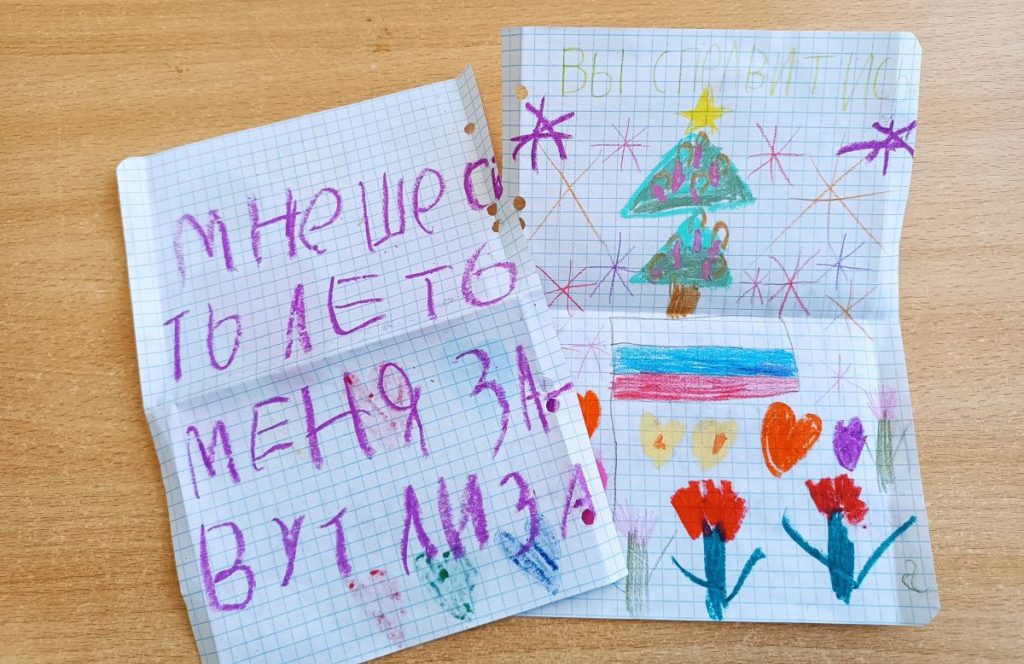 МНеШеС
ТЬ ЛЕТЬ
МЕНЯ ЗА-
ВУТ ЛИЗА
ВЫ СПРАВИТИСЬ